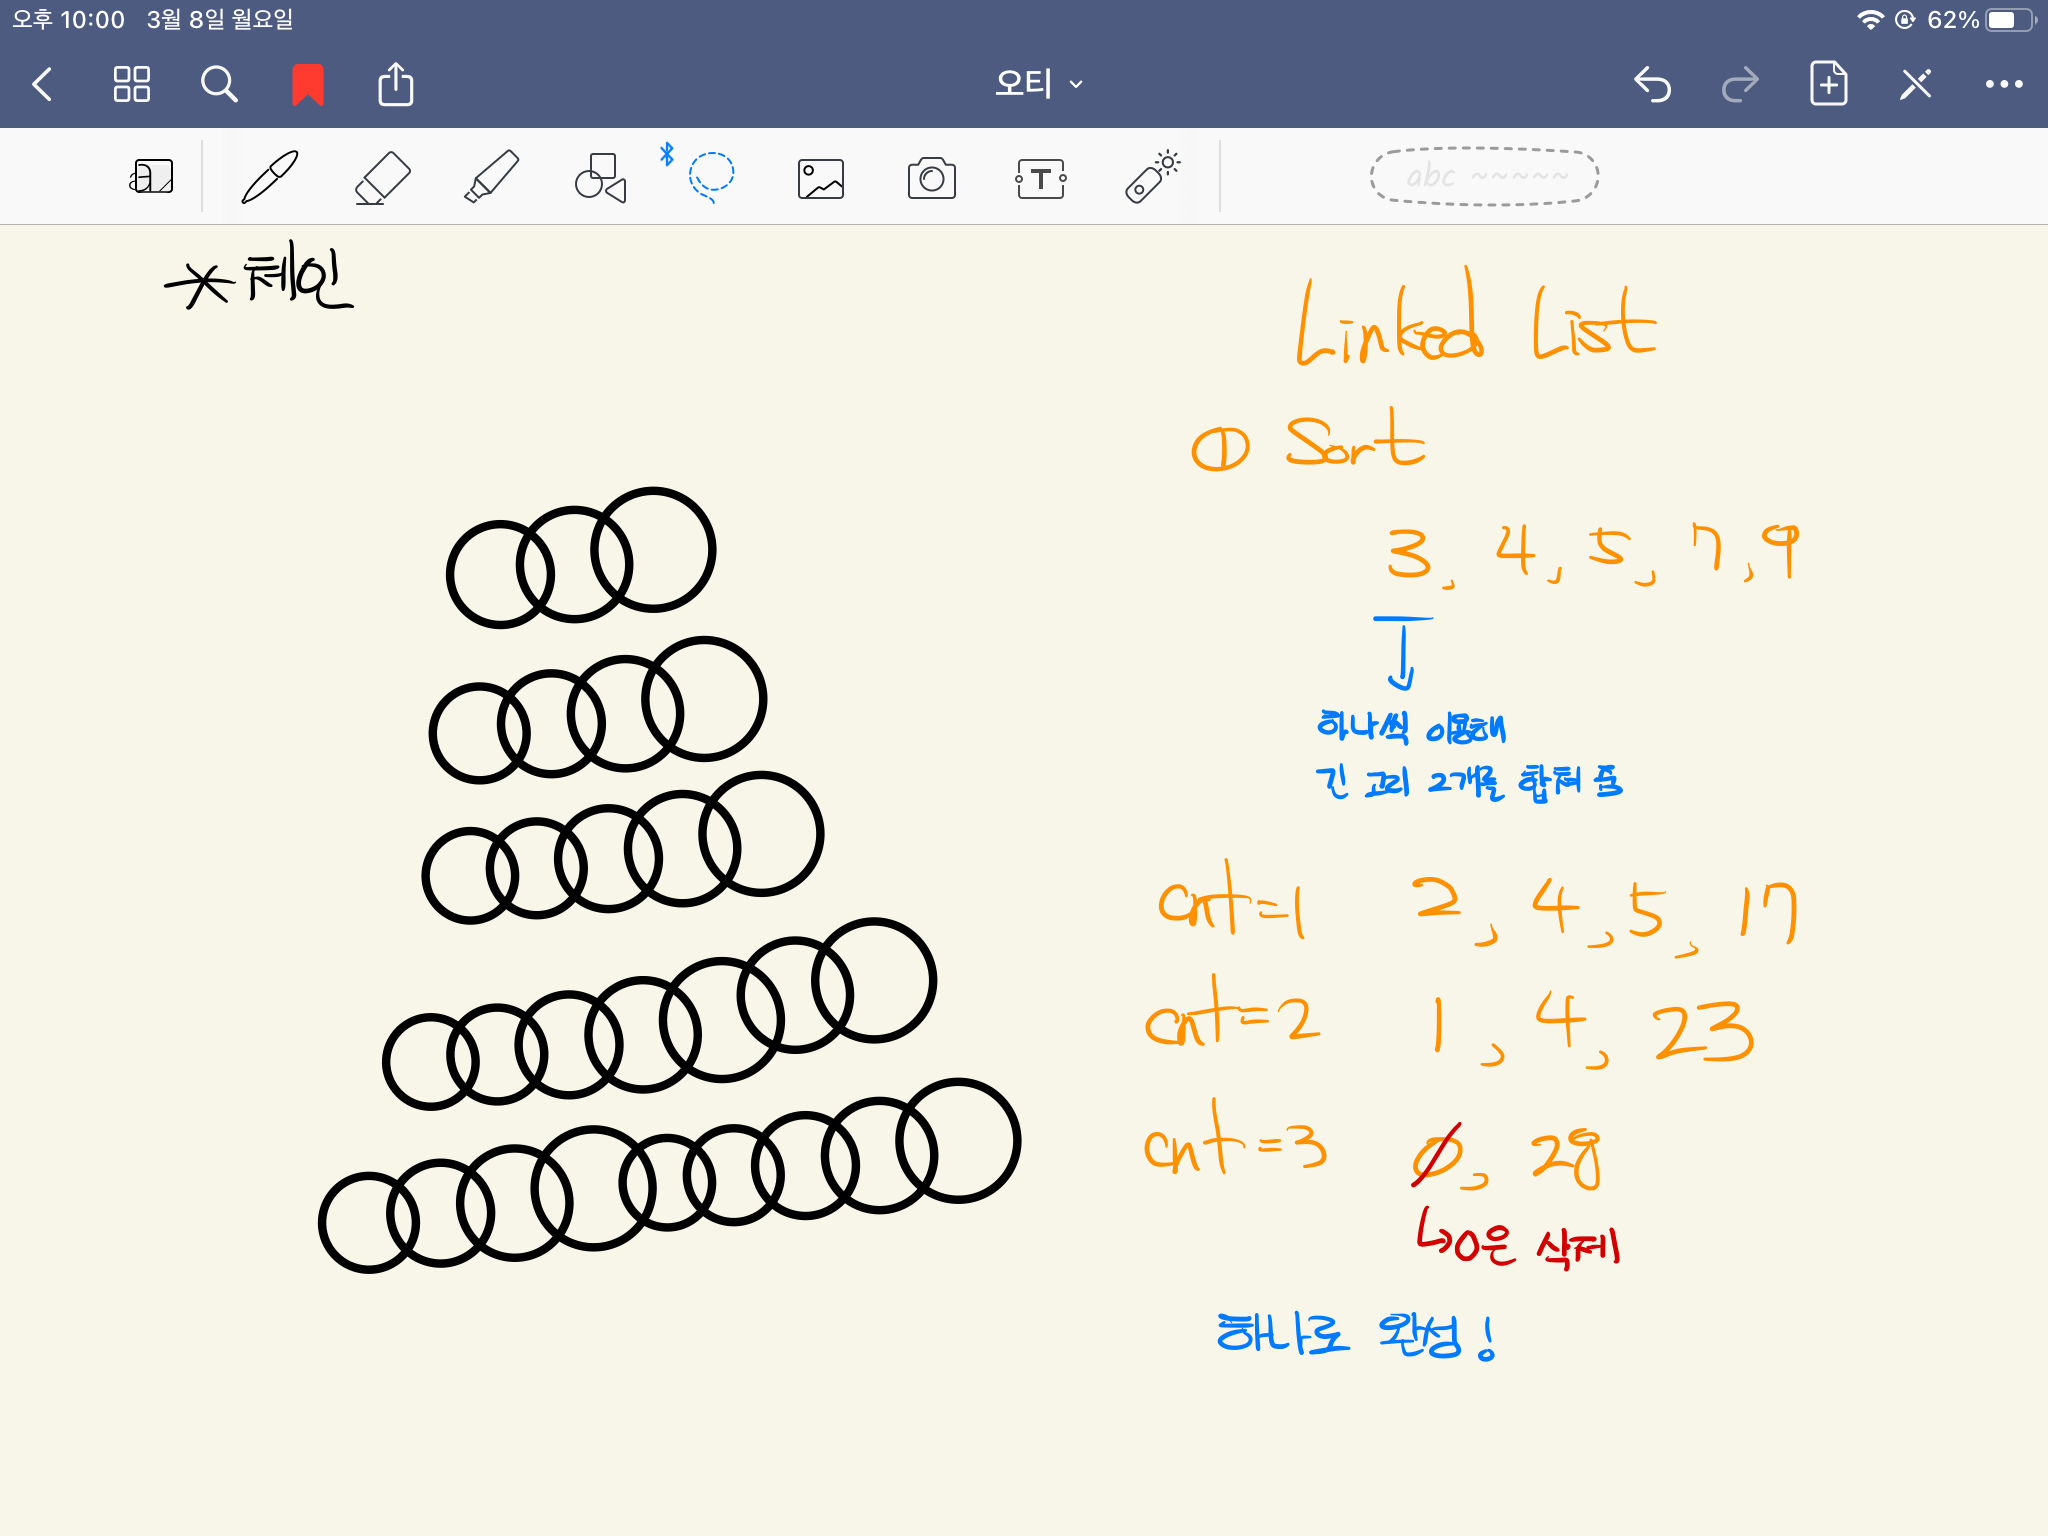 오후 10:00 3월 8일 월요일
62%
오티
abc ~~~~~
*체인
Linked List
① Sort
3, 4, 5, 7, 9
하나씩 이용해
긴 고리 2개를 합쳐 줌
cnt=1 2, 4, 5, 17
cnt=2 1, 4, 23
cnt=3 0, 28
↳0은 삭제
하나로 완성!